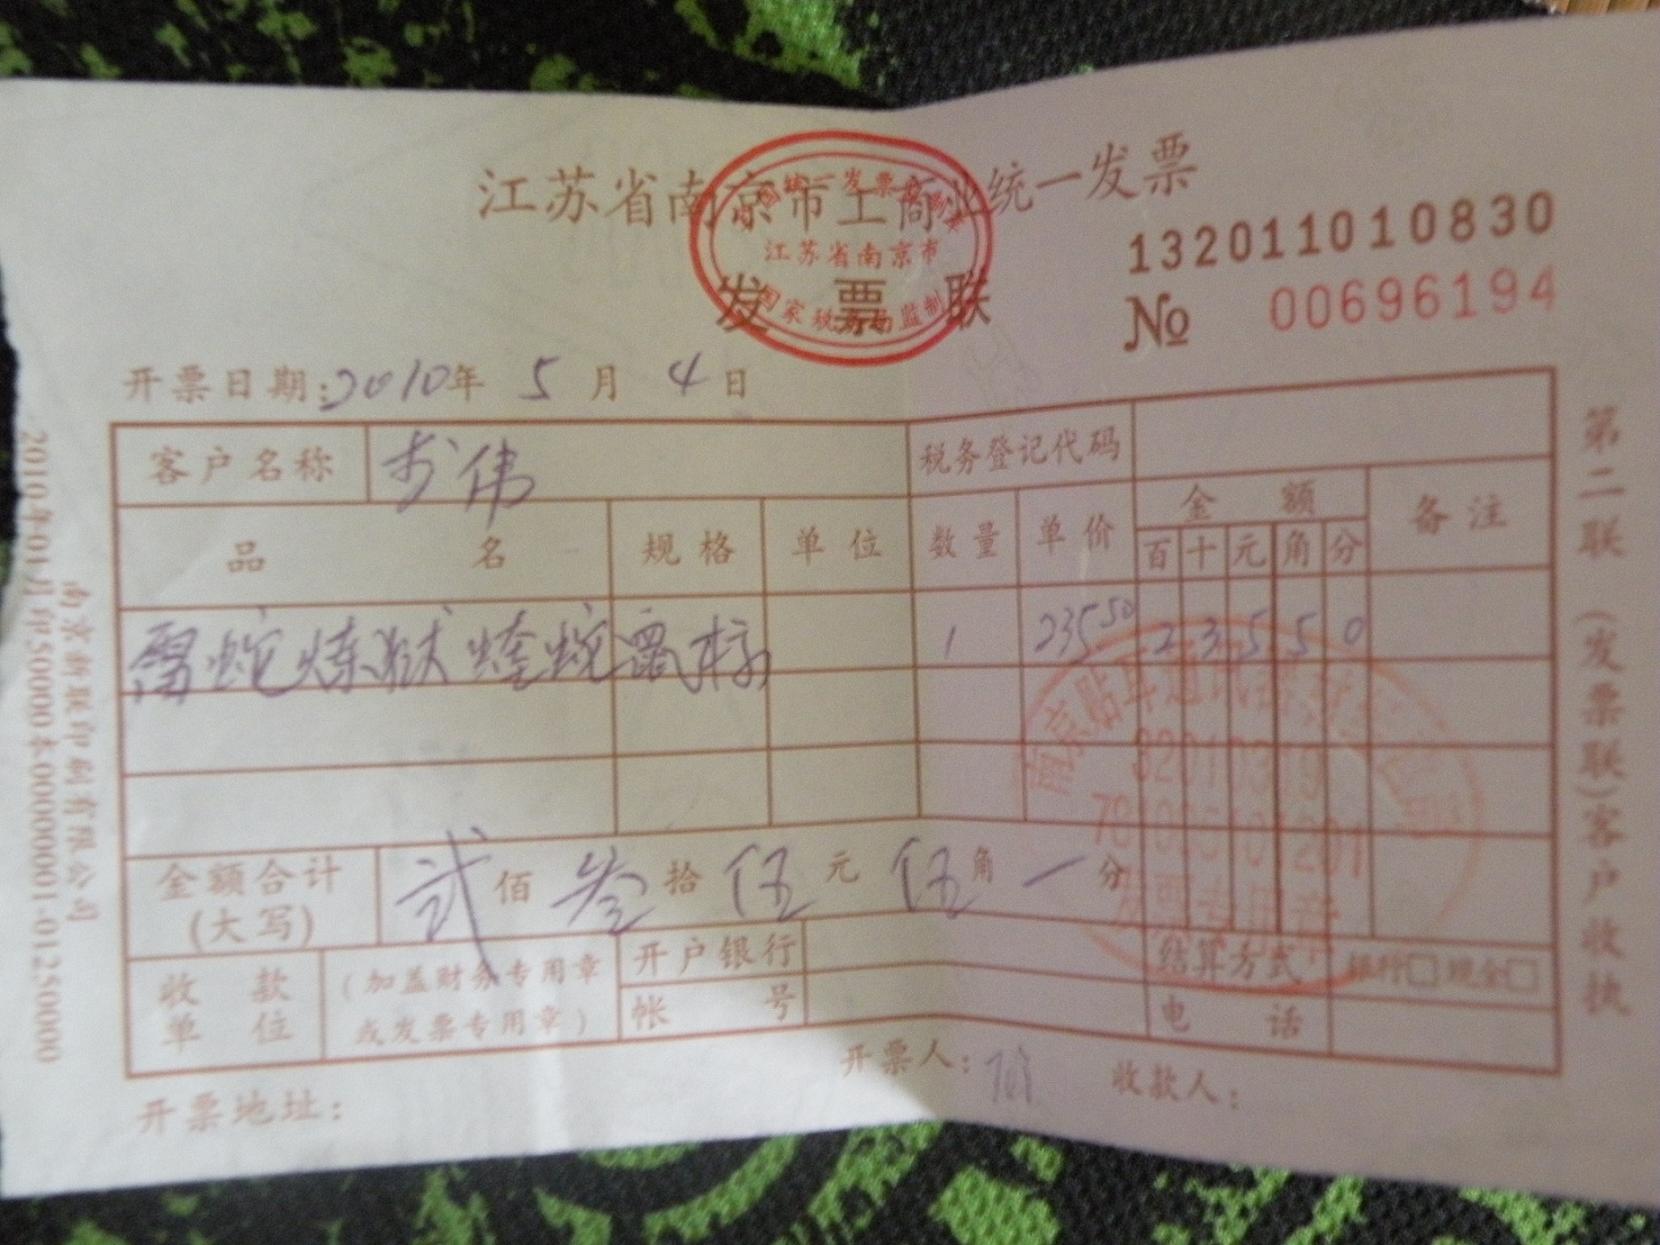 江苏省南京市工商业统一发票
全国统一发票监制章
江苏省南京市
国家税务局监制
发票联
132011010830
No 00696194
开票日期:2010年 5 月 4 日
客户名称 步伟
税务登记代码
品名 规格 单位 数量 单价 金额 备注
百 十 元 角 分
雷蛇炼狱蝰蛇鼠标 1 235.50 2 3 5 5 0
金额合计
(大写)
贰 佰 叁 拾 伍 元 伍 角 一 分
收款
单位
(加盖财务专用章
或发票专用章)
开户银行
帐号
结算方式 转帐□现金□
电话
开票地址:
开票人:
收款人:
第二联 (发票联)客户收执
南京新联印刷有限公司
2010年01月印50000本00000001-01250000
发票专用章